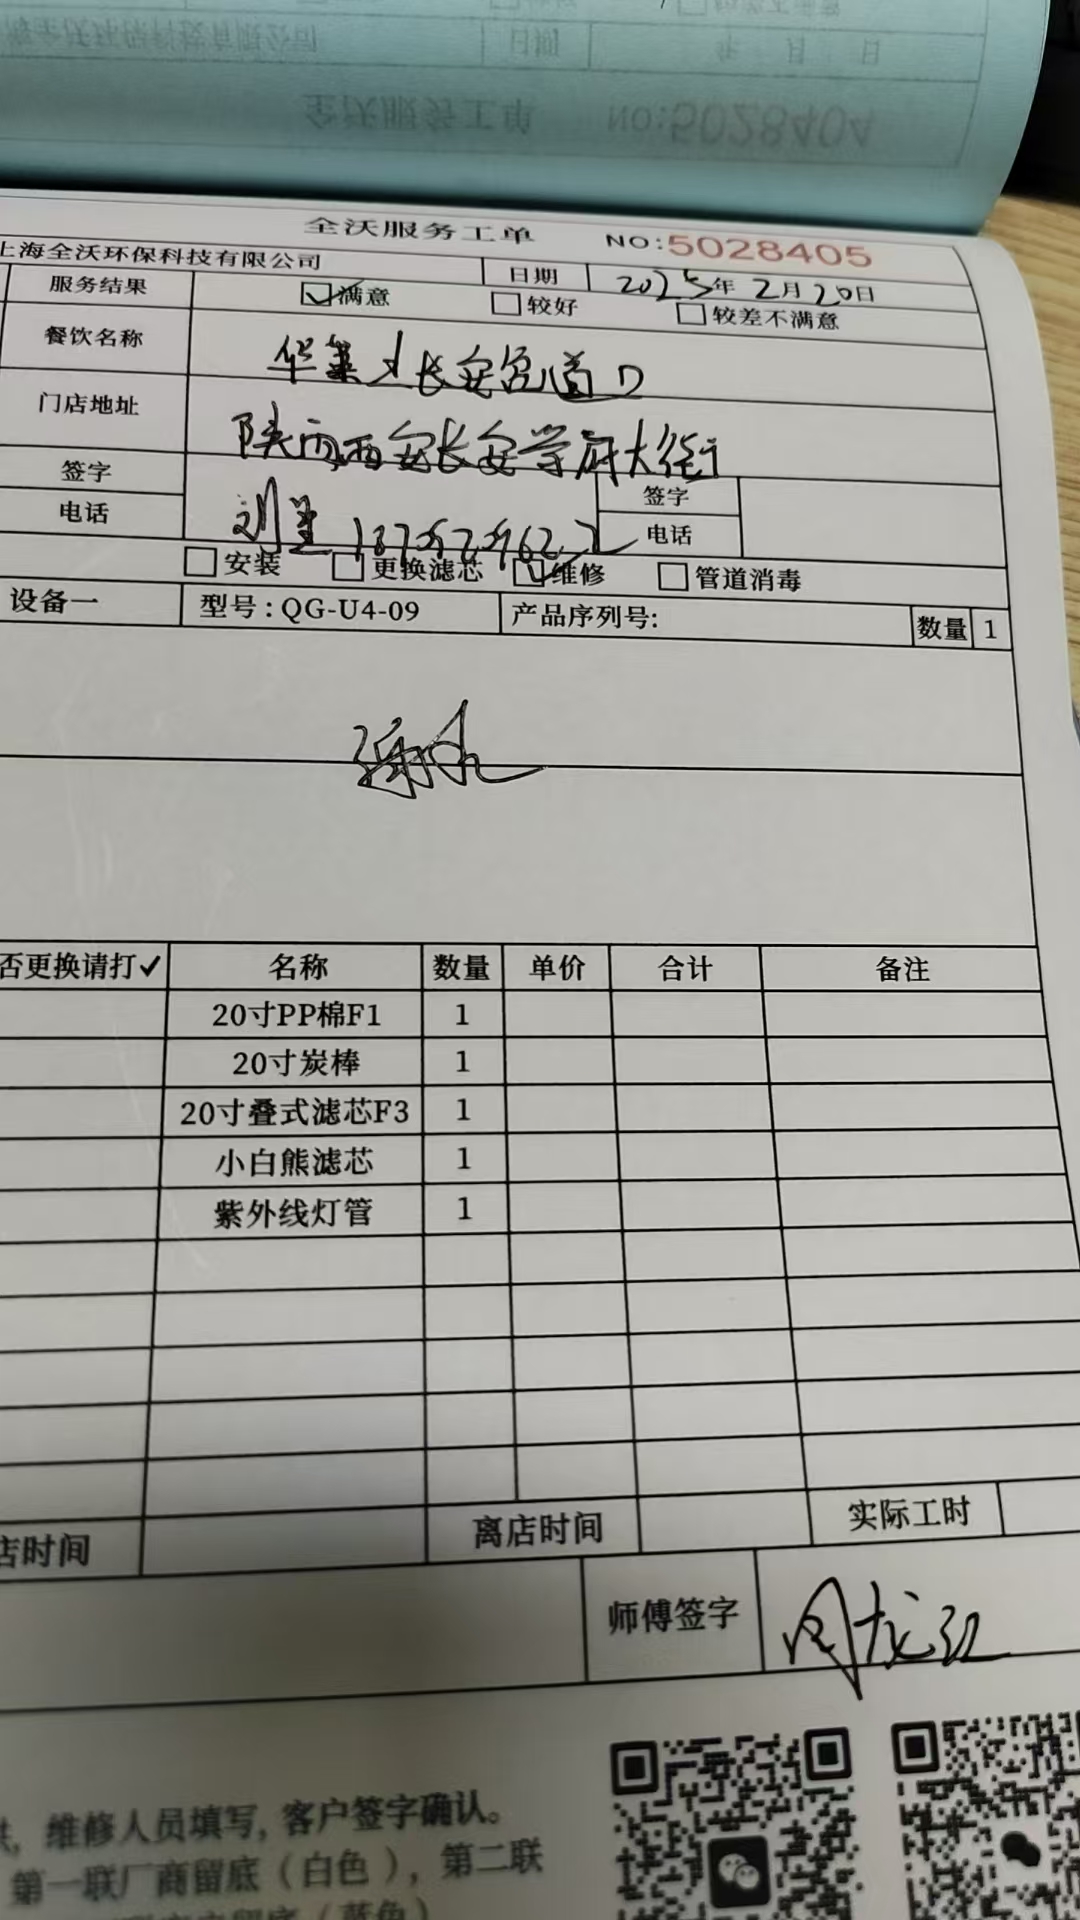 全沃服务工单 NO:5028404
全沃服务工单 NO:5028405
上海全沃环保科技有限公司 日期 2025年2月20日
服务结果 满意 较好 较差不满意
餐饮名称 华莱士长安宫道口
门店地址 陕西西安长安学府大街
签字 签字
电话 电话
安装 更换滤芯 维修 管道消毒
设备一 型号:QG-U4-09 产品序列号: 数量 1
否更换请打✓ 名称 数量 单价 合计 备注
20寸PP棉F1 1
20寸炭棒 1
20寸叠式滤芯F3 1
小白熊滤芯 1
紫外线灯管 1
店时间 离店时间 实际工时
师傅签字 周龙江
维修人员填写,客户签字确认。
第一联厂商留底(白色),第二联
(蓝色)